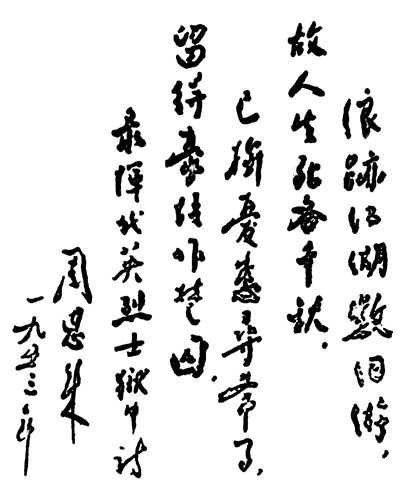 浪跡江湖憶旧游，
故人生死各千秋。
已擯憂患尋常事，
留得豪情作楚囚。
录惲代英烈士獄中詩
周恩来
一九五三年